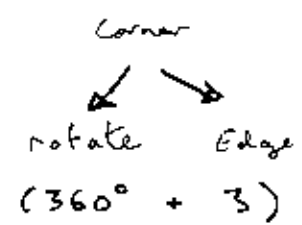 Corner
rotate Edge
(360° + 3)